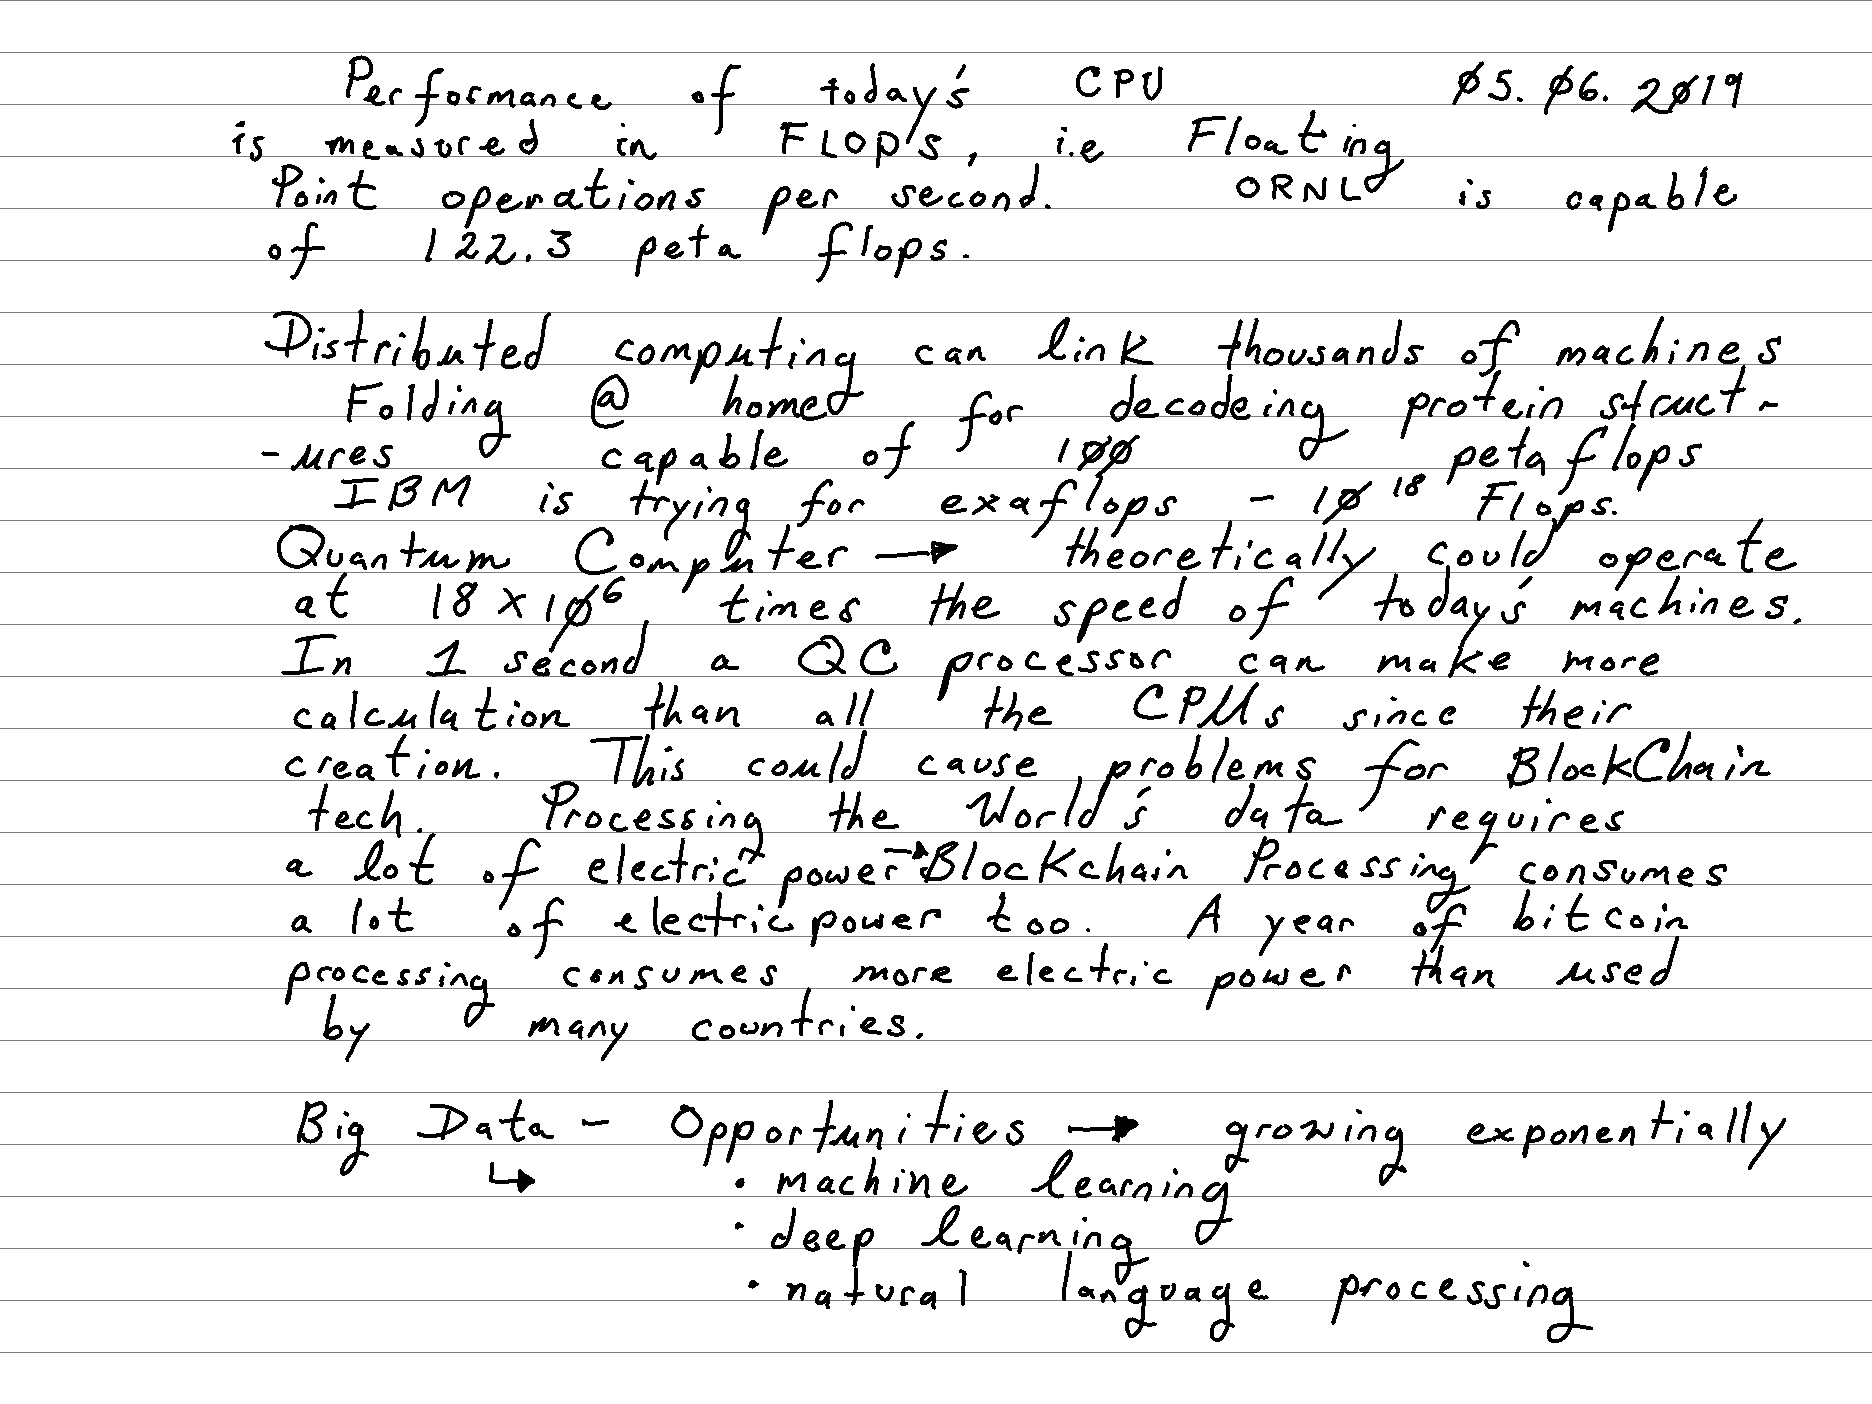 Performance of today's CPU 05.06.2019
is measured in FLOP's, i.e Floating
Point operations per second. ORNL is capable
of 122.3 peta flops.
Distributed computing can link thousands of machines
Folding @ home for decodeing protein struct-
-ures capable of 100 petaflops
IBM is trying for exaflops - 10^18 Flops.
Quantum Computer → theoretically could operate
at 18 x 10^6 times the speed of today's machines.
In 1 second a QC processor can make more
calculation than all the CPUs since their
creation. This could cause problems for BlockChain
tech. Processing the World's data requires
a lot of electric power → Blockchain Processing consumes
a lot of electric power too. A year of bitcoin
processing consumes more electric power than used
by many countries.
Big Data - Opportunities → growing exponentially
↳ • machine learning
• deep learning
• natural language processing